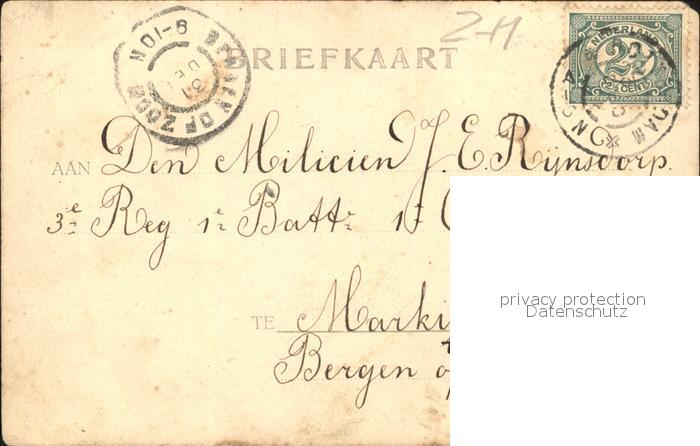 Z-H
BRIEFKAART
BERGEN OP ZOOM
9-10N
31
DEC
NEDERLAND
2½
2½ CENT
DAM
AAN Den Milicien J. E. Rijnsdorp.
3e Reg 1e Batt: 1e
privacy protection
Datenschutz
TE Marki
Bergen o